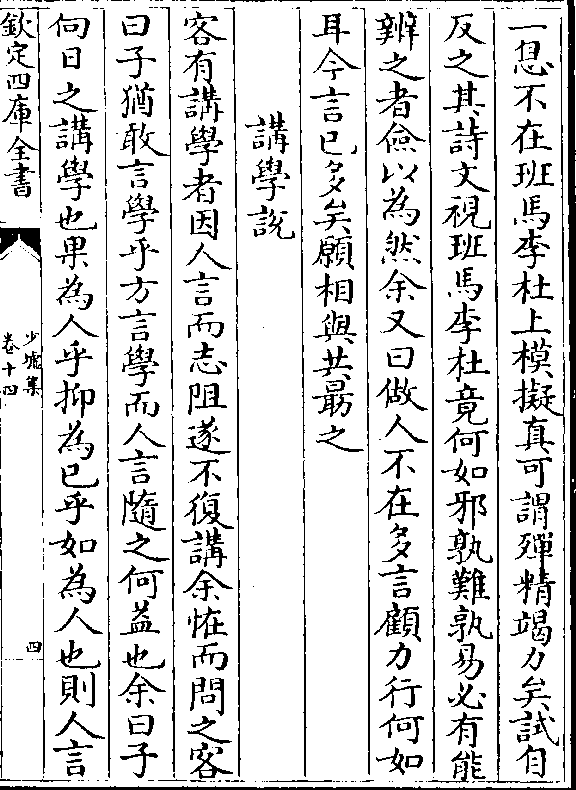 一息不在班馬李杜上模擬真可謂殫精竭力矣試自
反之其詩文視班馬李杜竟何如邪孰難孰易必有能
辨之者僉以為然余又曰做人不在多言顧力行何如
耳今言已多矣願相與共朂之
講學說
客有講學者因人言而志阻遂不復講余怪而問之客
曰子猶敢言學乎方言學而人言隨之何益也余曰子
向日之講學也果為人乎抑為己乎如為人也則人言
欽定四庫全書
少墟集
卷十四
四